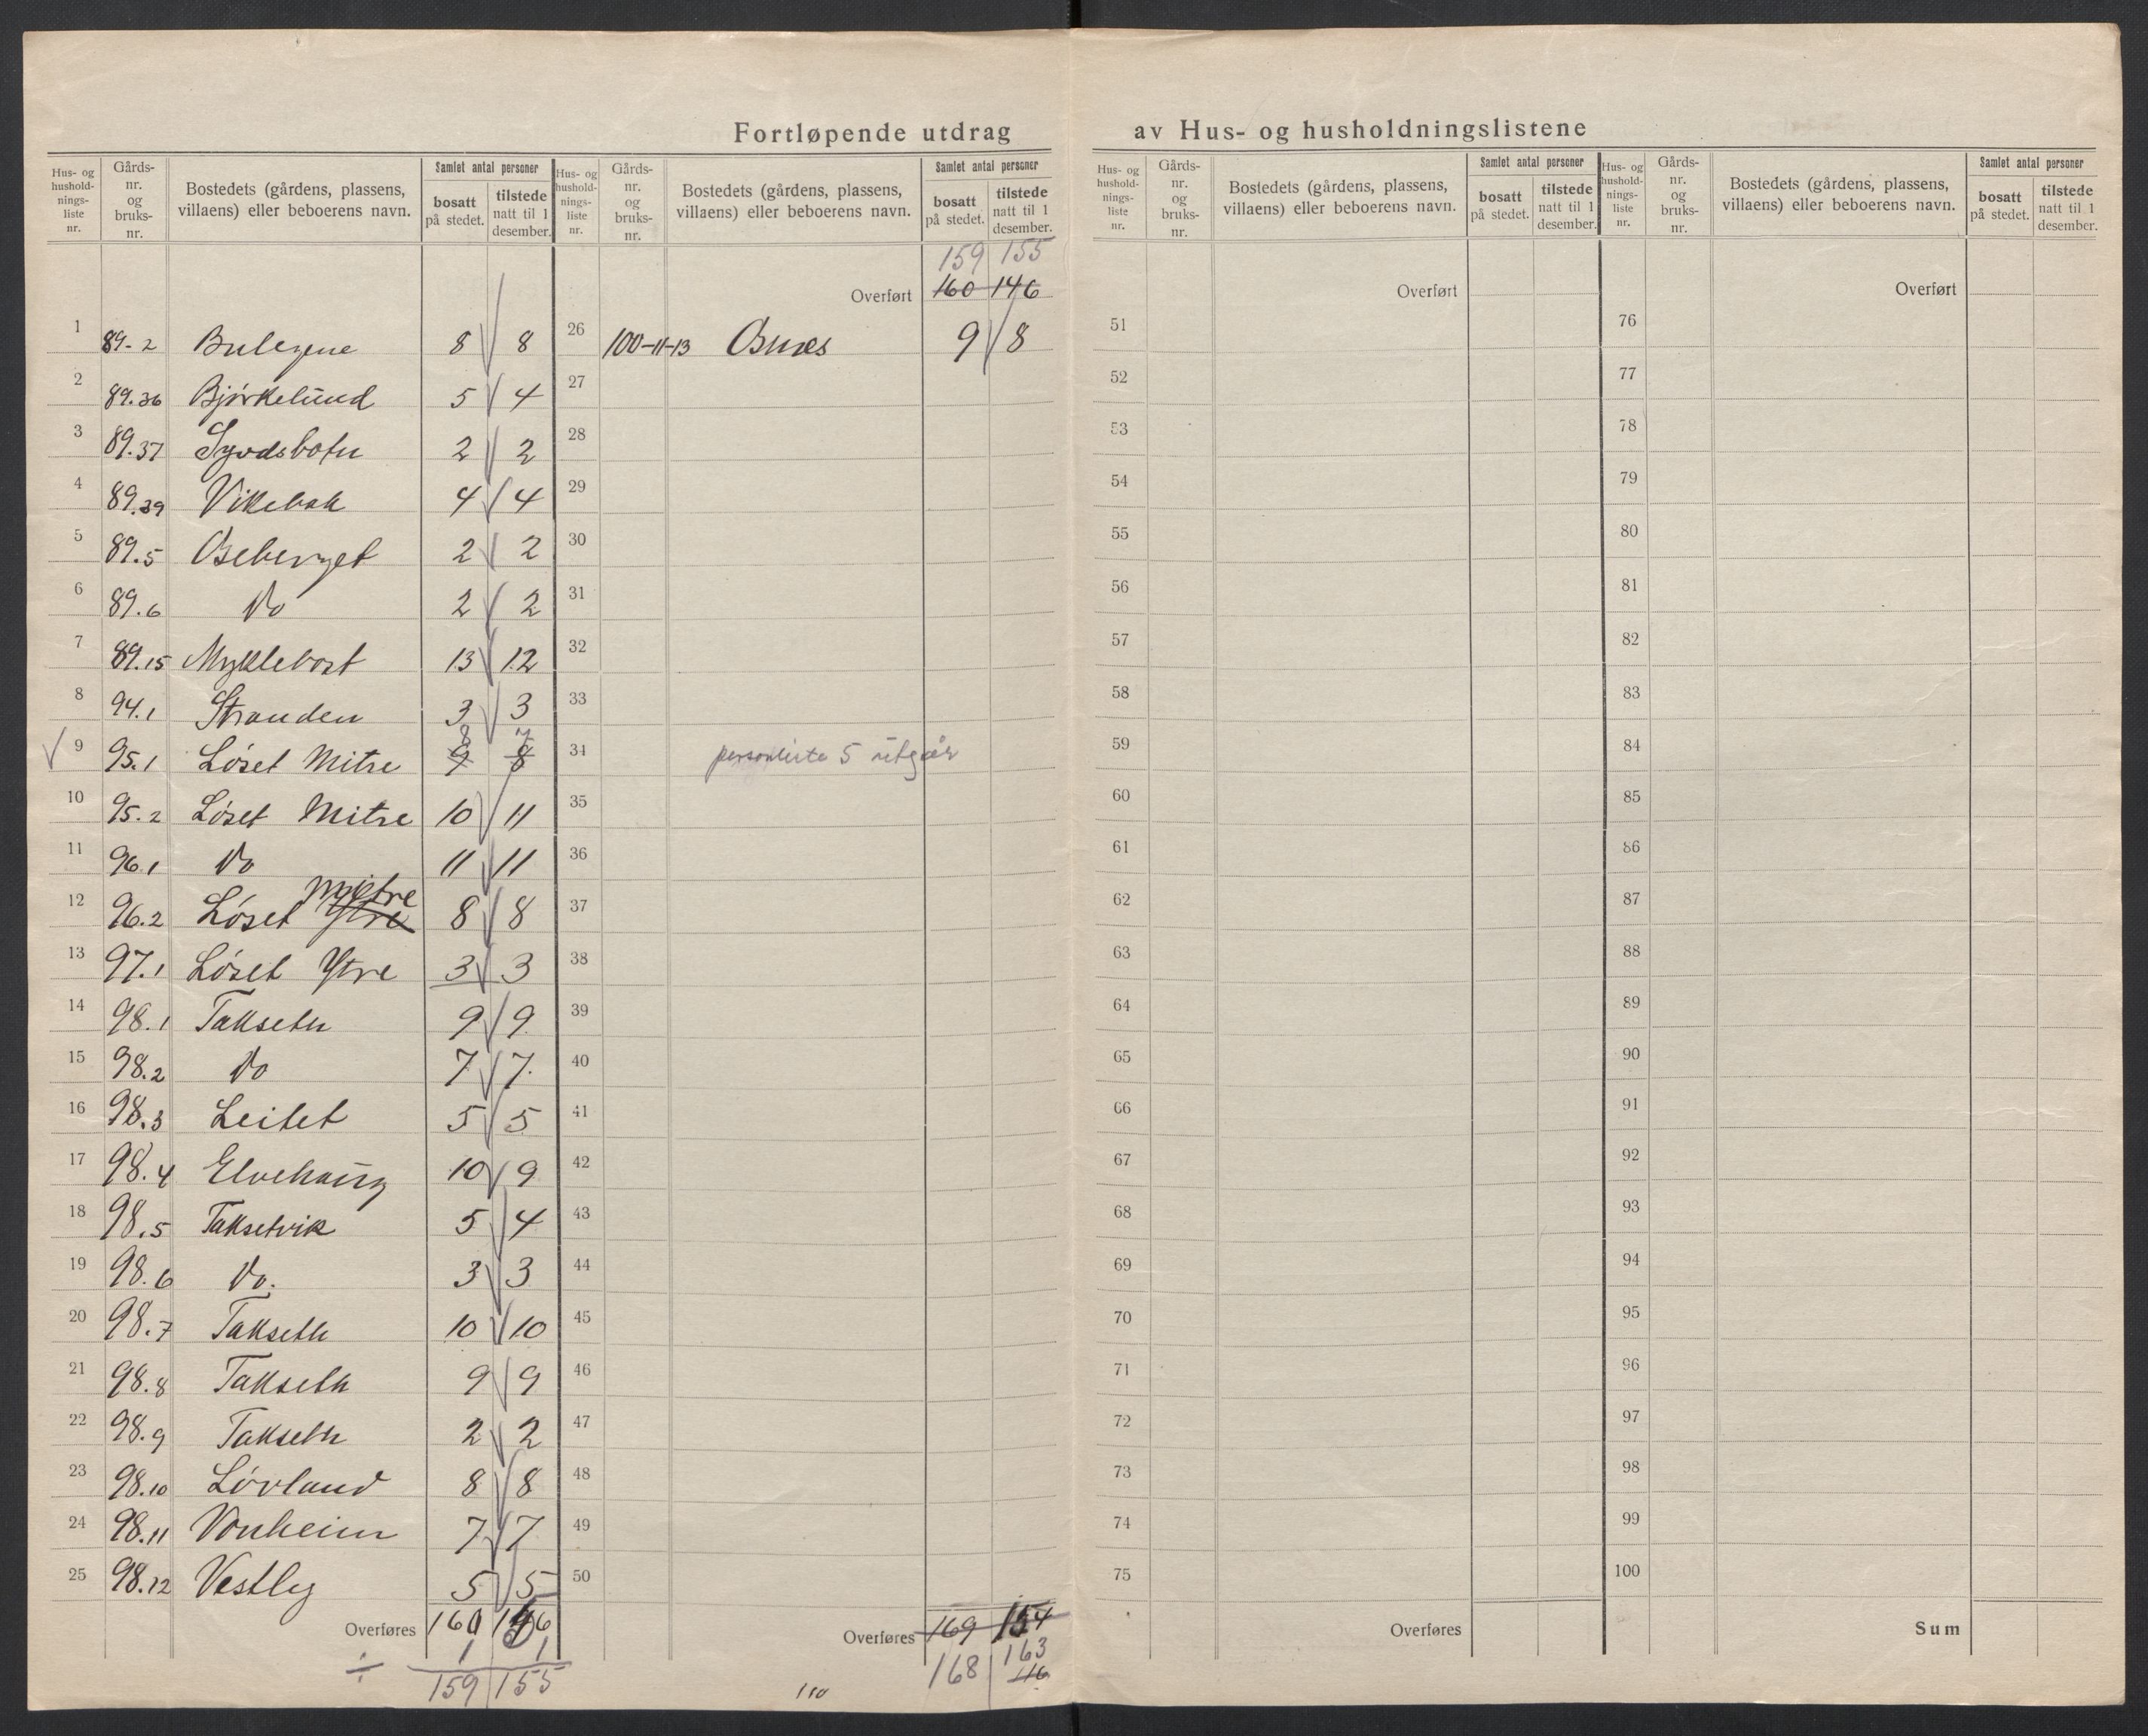 Fortløpende utdrag av Hus- og husholdningslistene
Hus- og hushold- nings- liste nr. | Gårds- nr. og bruks- nr. | Bostedets (gårdens, plassens, villaens) eller beboerens navn. | Samlet antal personer | bosatt på stedet. | tilstede natt til 1 desember.
1 89-2 8 8
2 89.36 Bjørkelund 5 4
3 89.37 Syvdsbotn 2 2
4 89.39 Vikebak 4 4
5 89.5 Oseberget 2 2
6 89.6 Do 2 2
7 89.15 Myklebost 13 12
8 94.1 Stranden 3 3
9 95.1 Løset Mitre 9 8 8 7
10 95.2 Løset Mitre 10 11
11 96.1 Do 11 11
12 96.2 Løset Ytre Mitre 8 8
13 97.1 Løset Ytre 3 3
14 98.1 Takseth 9 9
15 98.2 Do 7 7
16 98.3 Leitet 5 5
17 98.4 Elvehaug 10 9
18 98.5 Taksetvik 5 4
19 98.6 Do. 3 3
20 98.7 Takseth 10 10
21 98.8 Takseth 9 9
22 98.9 Takseth 2 2
23 98.10 Løvland 8 8
24 98.11 Vonheim 7 7
25 98.12 Vestly 5 5
Overføres 160 156
÷ 1 1
159 155
Hus- og hushold- nings- liste nr. | Gårds- nr. og bruks- nr. | Bostedets (gårdens, plassens, villaens) eller beboerens navn. | Samlet antal personer | bosatt på stedet. | tilstede natt til 1 desember.
159 155
Overført 160 146
26 100-11-13 9 8
27
28
29
30
31
32
33
34 personliste 5 utgår
35
36
37
38
39
40
41
42
43
44
45
46
47
48
49
50
Overføres 169 154
163
168 116
110
Hus- og hushold- nings- liste nr. | Gårds- nr. og bruks- nr. | Bostedets (gårdens, plassens, villaens) eller beboerens navn. | Samlet antal personer | bosatt på stedet. | tilstede natt til 1 desember.
Overført
51
52
53
54
55
56
57
58
59
60
61
62
63
64
65
66
67
68
69
70
71
72
73
74
75
Overføres
Hus- og hushold- nings- liste nr. | Gårds- nr. og bruks- nr. | Bostedets (gårdens, plassens, villaens) eller beboerens navn. | Samlet antal personer | bosatt på stedet. | tilstede natt til 1 desember.
Overført
76
77
78
79
80
81
82
83
84
85
86
87
88
89
90
91
92
93
94
95
96
97
98
99
100
Sum